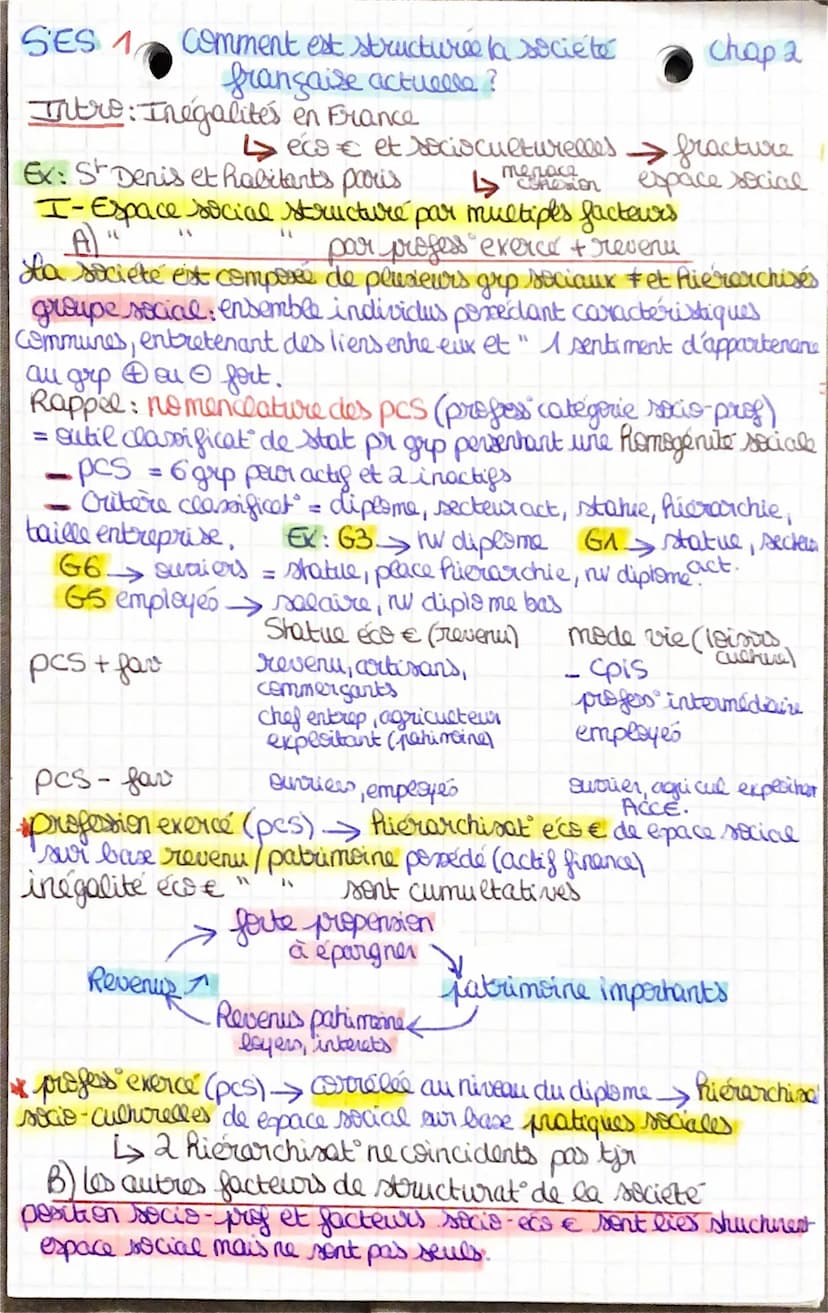 SES 1 Comment est structurée la société Chap 2
française actuelle ?
Intro : Inégalités en France
↳ éco € et socioculturelles → fracture
Ex : St Denis et habitants paris ↳ menace cohésion espace social
I - Espace social structuré par multiples facteurs
A) " " " par profess° exercé + revenu
La société est composée de plusieurs grp sociaux ≠ et hiérarchisés
groupe social : ensemble individus possédant caractéristiques
communes, entretenant des liens entre eux et " 1 sentiment d'appartenance
au grp ⊕ ou ⊖ fort.
Rappel : nomenclature des pcs (profess° catégorie socio-prof)
= outil classificat° de stat pr grp présentant une homogénité sociale
- pcs = 6 grp pour actif et 2 inactifs
- Critère classificat° = diplome, secteur act, statue, hiérarchie,
taille entreprise. Ex : G3 → nv diplome G1 → statue, secteur act.
G6 → ouvriers = statue, place hierarchie, nv diplome
G5 employés → salaire, nv diplome bas
Statue éco € (revenu) mode vie (loisirs culture)
pcs + fav revenu, artisans, - cpis
commerçants profess° intermédiaire
chef entrep, agriculteur employés
exploitant (patrimoine)
pcs - fav ouvriers, employés ouvrier, agricul exploitant
ACCE.
* profession exercé (pcs) → hiérarchisat° éco € de epace social
sur base revenu / patrimoine possédé (actif finance)
inégalité éco € " " sont cumultatives
→ forte propension
à épargner
Revenus ↗ patrimoine importants
Revenus patrimoine
loyers, interets
* profess° exercé (pcs) → corrélée au niveau du diplome → hiérarchisa°
socio-culturelles de espace social sur base pratiques sociales
↳ 2 hiérarchisat° ne coincidents pas tjr
B) Les autres facteurs de structurat° de la société
position socio-prof et facteurs socio-éco € sont liés structurent
espace social mais ne sont pas seuls.